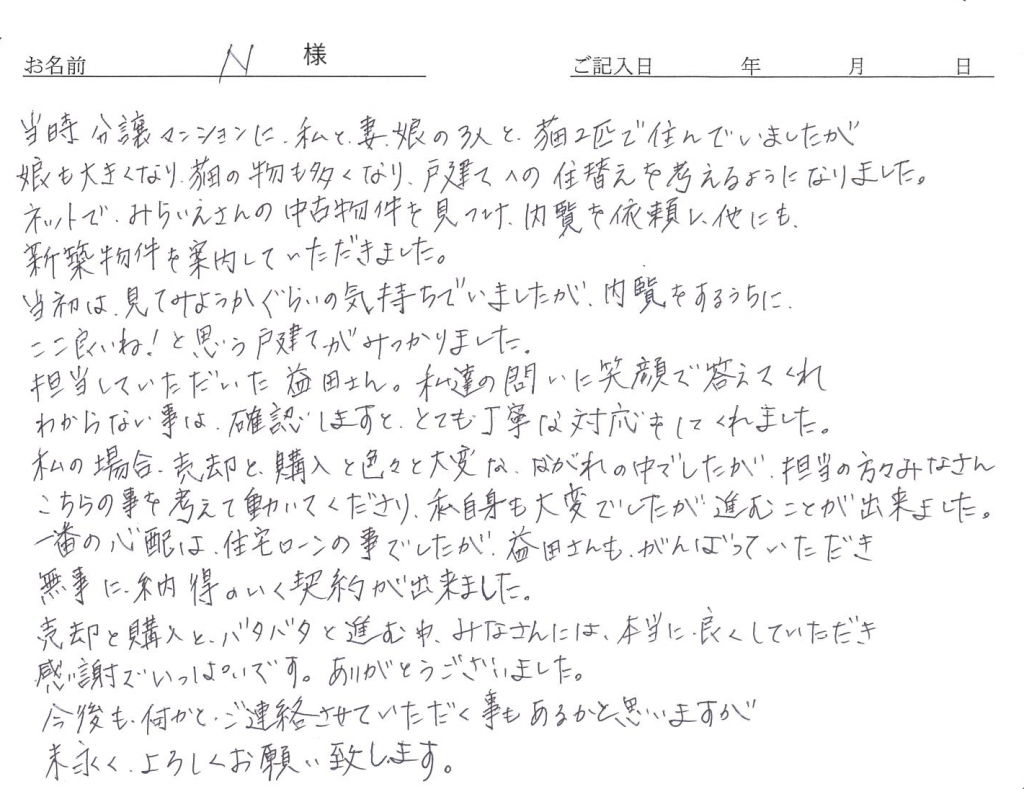 お名前 N 様 ご記入日 年 月 日
当時 分譲マンションに、私と、妻、娘の3人と、猫2匹で住んでいましたが
娘も大きくなり、猫の物も多くなり、戸建てへの住替えを考えるようになりました。
ネットで、みらいえさんの中古物件を見つけ、内覧を依頼し、他にも、
新築物件を案内していただきました。
当初は、見てみようかぐらいの気持ちでいましたが、内覧をするうちに、
ここ良いね!と思う戸建てがみつかりました。
担当していただいた益田さん。私達の問いに笑顔で答えてくれ
わからない事は、確認しますと、とても丁寧な対応をしてくれました。
私の場合、売却と、購入と色々と大変な、ながれの中でしたが、担当の方々みなさん
こちらの事を考えて動いてくださり、私自身も大変でしたが進むことが出来ました。
一番の心配は、住宅ローンの事でしたが、益田さんも、がんばっていただき
無事に、納得のいく契約が出来ました。
売却と購入と、バタバタと進む中、みなさんには、本当に、良くしていただき
感謝でいっぱいです。ありがとうございました。
今後も、何かと、ご連絡させていただく事もあるかと思いますが
末永く、よろしくお願い致します。